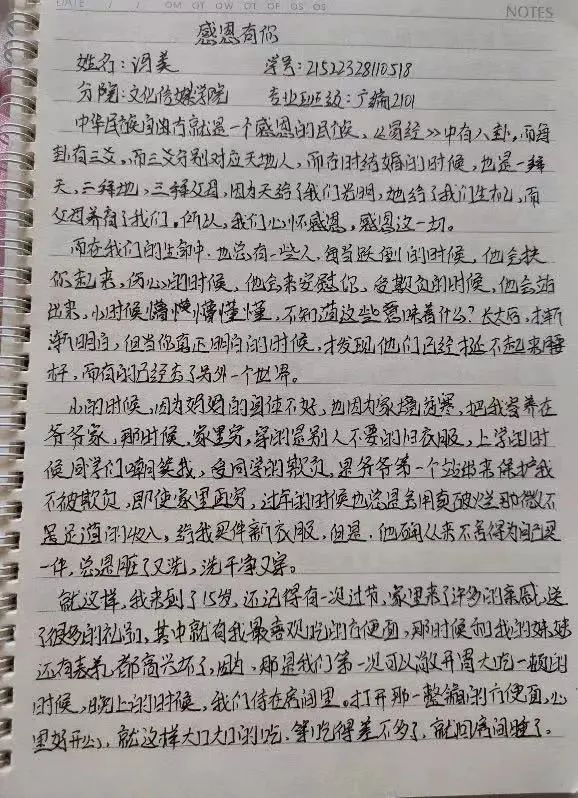 DATE / / OM OT OW OT OF OS OS
NOTES
感恩有你
姓名:闫美 学号:21522328110518
分院:文化传媒学院 专业班级:广编2101
中华民族自古就是一个感恩的民族,《易经》中有八卦,而每
卦有三爻,而三爻分别对应天地人,而古时结婚的时候,也是一拜
天,二拜地,三拜父母,因为天给了我们光明,地给了我们生机,而
父母养育了我们。所以,我们心怀感恩,感恩这一切。
而在我们的生命中,也总有一些人,每当跌倒的时候,他会扶
你起来,伤心的时候,他会来安慰你,受欺负的时候,他会站
出来,小时候懵懵懂懂,不知道这些意味着什么?长大后,才渐
渐明白,但当你真正明白的时候,才发现他们已经挺不起来腰
杆,而有的已经去了另外一个世界。
小的时候,因为妈妈的身体不好,也因为家境贫寒,把我寄养在
爷爷家,那时候,家里穷,穿的是别人不要的旧衣服,上学的时
候同学们嘲笑我,受同学的欺负,是爷爷第一个站出来保护我
不被欺负,即使家里再穷,过年的时候也总是会用卖破烂那微不
足道的收入,给我买件新衣服,但是,他确从来不舍得为自己买
一件,总是脏了又洗,洗干净又穿。
就这样,我来到了15岁,还记得有一次过节,家里来了许多的亲戚,送
了很多的礼物,其中就有我最喜欢吃的方便面,那时候和我的妹妹
还有表弟都高兴坏了,因为,那是我们第一次可以敞开胃大吃一顿的
时候,晚上的时候,我们待在房间里。打开那一整箱的方便面,心
里好开心,就这样大口大口的吃,等吃得差不多了,就回房间睡了。